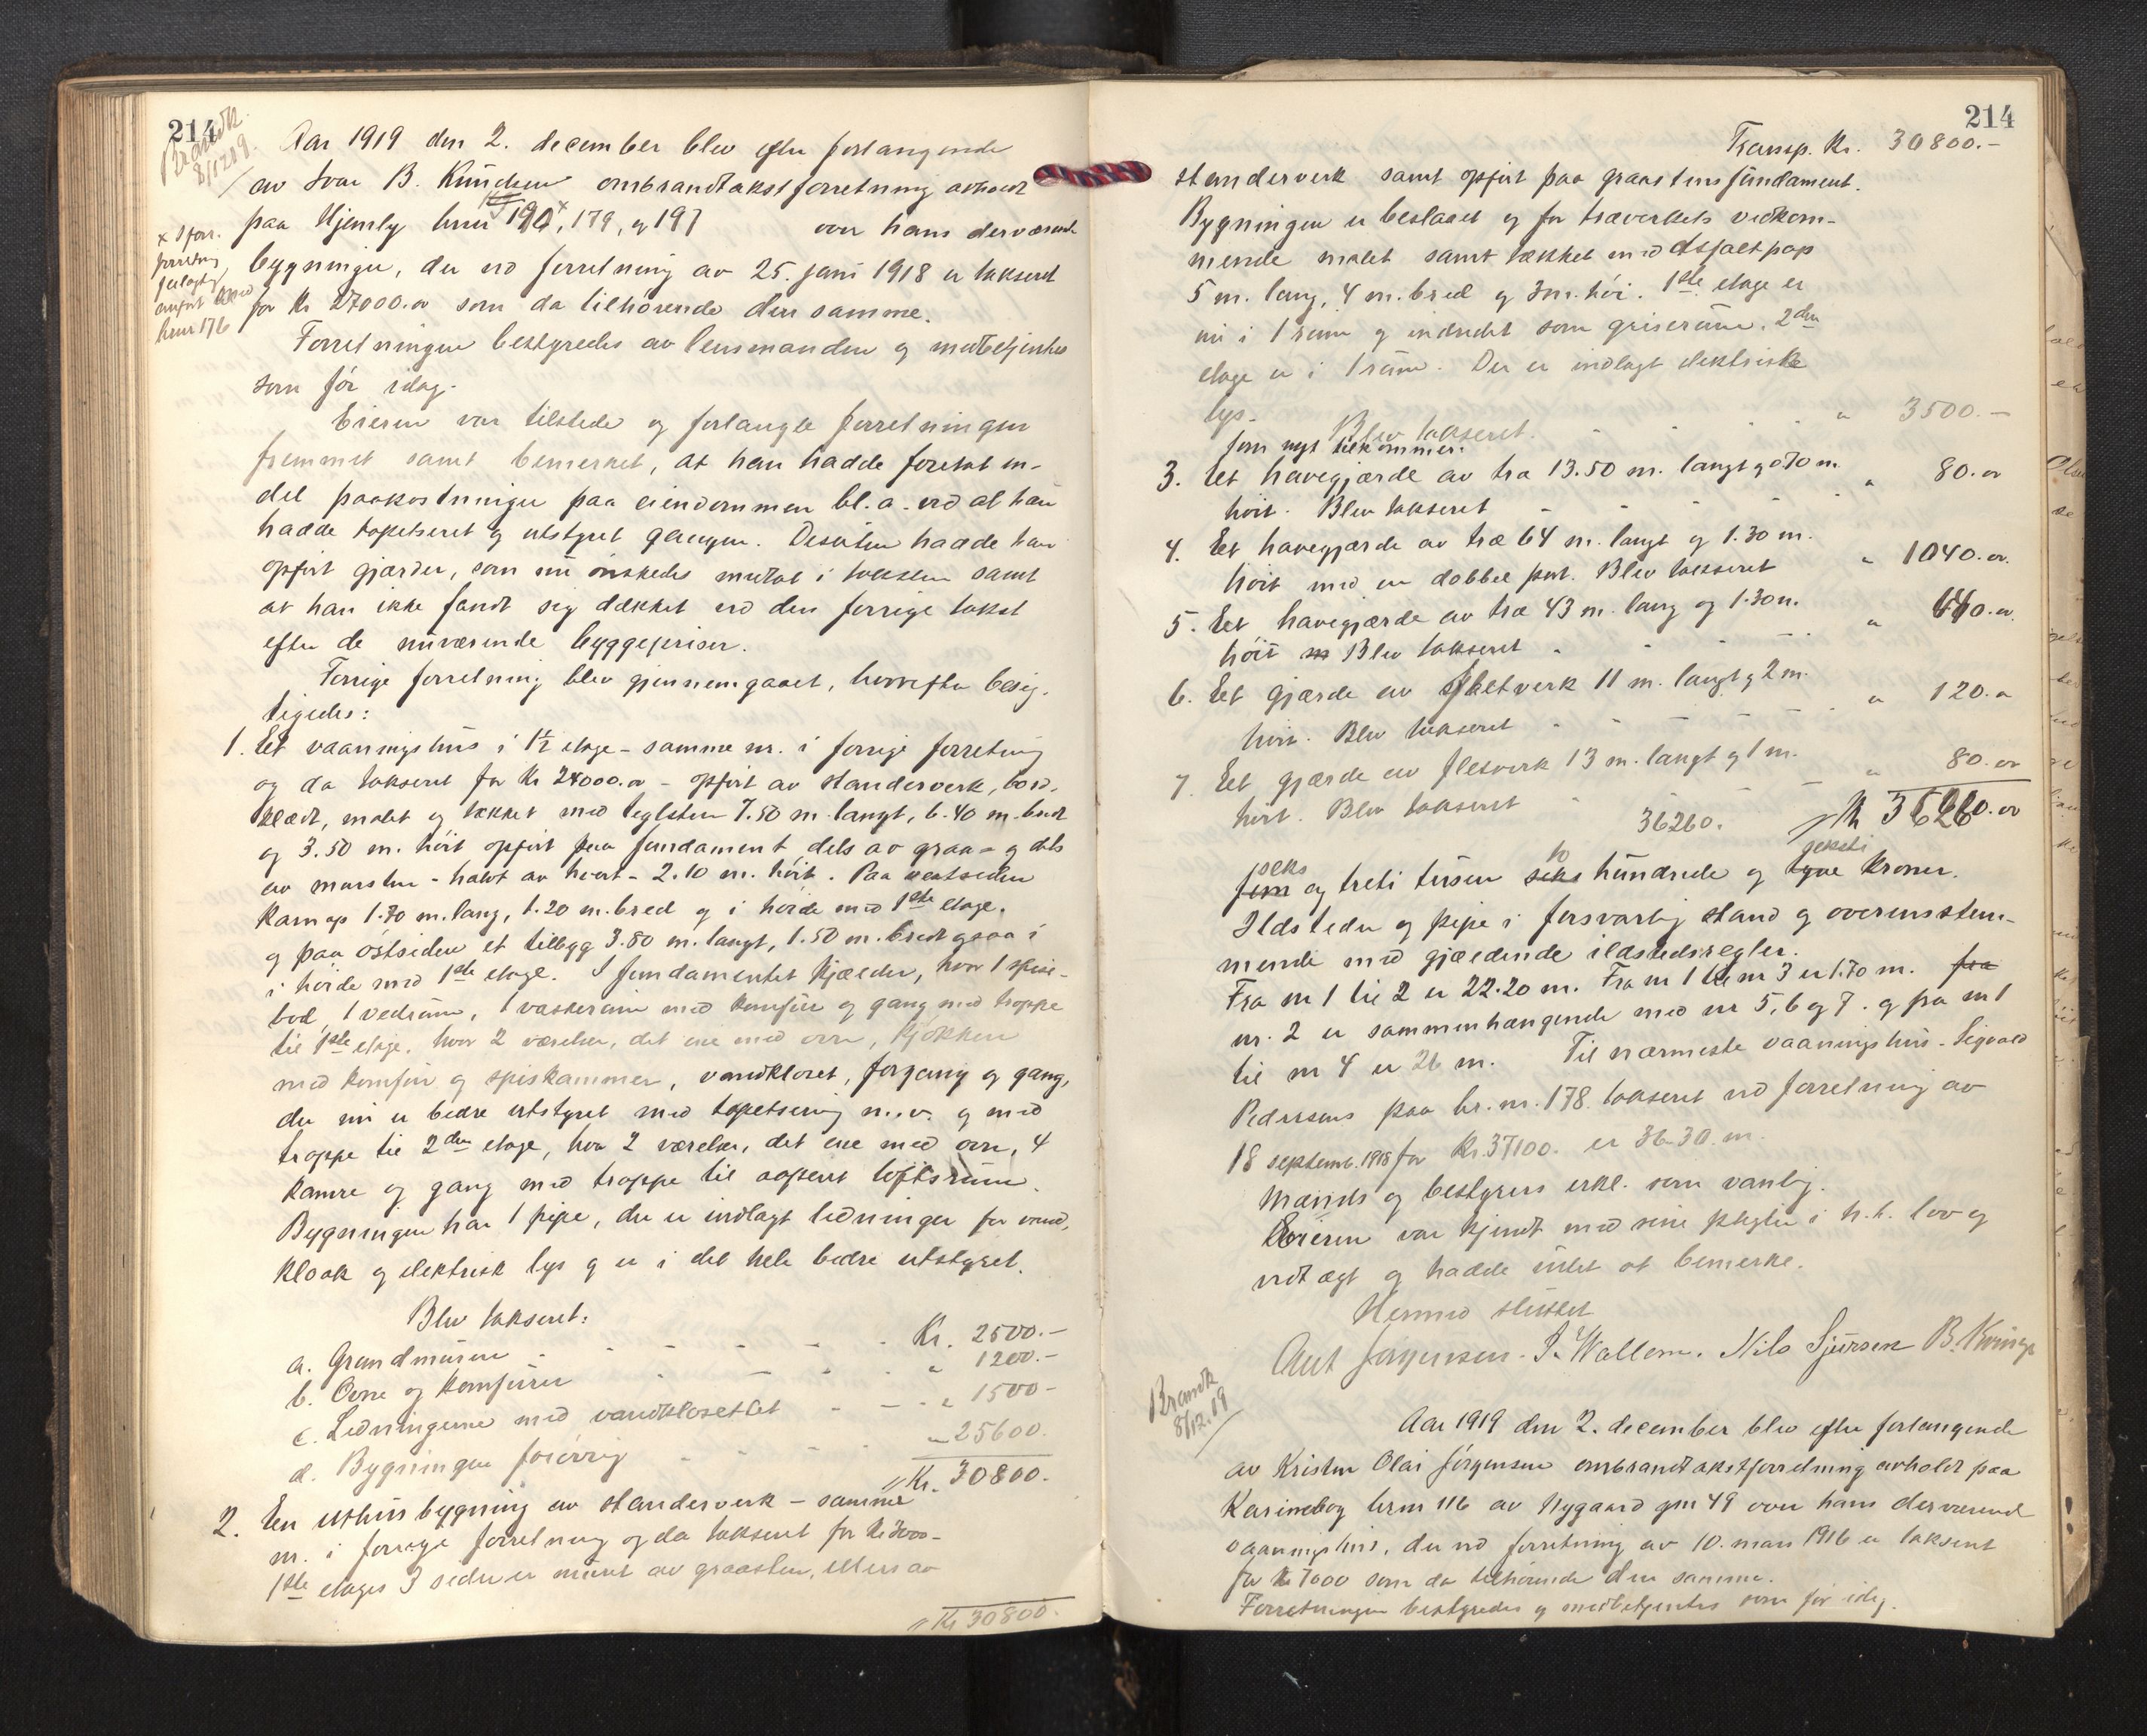 214
Brandk.
8/12 19.
Aar 1919 den 2. december blev efter forlangende
av Ivar B. Knudsen ombrandtakstforretning avholdt
paa Hjemly brnr 190x, 179, og 197 over hans derværende
x I forr.
forretning
feilagtig
anført med
brnr 176
bygninger, der ved forretning av 25. juni 1918 er takseret
for Kr 27000.00 som da tilhørende den samme.
Forretningen bestyredes av lensmanden og medbetjentes
som før idag.
Eieren var tilstede og forlangte forretningen
fremmet samt bemerket, at han hadde foretat en-
del paakostninger paa eiendommen bl.a. ved at han
hadde tapetseret og utstyret gangen. Desuten hadde han
opført gjærder, som nu ønskedes medtat i taksten samt
at han ikke fandt sig dækket ved den forrige takst
efter de nuværende byggepriser.
Forrige forretning blev gjennemgaaet, hvorefter besig-
tigedes:
1. Et vaaningshus i 1½ etage - samme nr. i forrige forretning
og da takseret for Kr 24000.00 - opført av standerverk, bord-
klædt, malet og tækket med teglsten 7.50 m. langt, 6.40 m. bredt
og 3.50 m. høit opført paa fundament dels av graa- og dels
av mursten - halvt av hvert - 2.10 m. høit. Paa vestsiden
karnap 1.70 m. lang, 1.20 m. bred og i høide med 1ste etage.
og paa østsiden et tilbygg 3.80 m. langt, 1.50 m. bredt ogsaa i
i høide med 1ste etage. I fundamentet kjælder, hvor 1 spise-
bod, 1 vedrum, 1 vaskerum med komfur og gang med trappe
til 1ste etage, hvor 2 værelser, det ene med ovn, kjøkken
med komfur og spiskammer, vandkloset, forgang og gang,
der nu er bedre utstyret med tapetsering m.v. og med
trappe til 2den etage, hvor 2 værelser, det ene med ovn, 4
kamre og gang med trappe til aapent loftsrum.
Bygningen har 1 pipe, der er indlagt ledninger for vand,
kloak og elektrisk lys og er i det hele bedre utstyret.
Blev takseret:
a. Grundmuren - - - - - Kr. 2500.-
b. Ovne og komfurer - - - - " 1200.-
c. Ledningerne med vandklosettet - - - " 1500-
d. Bygningen forøvrig - - - - " 25600.
" Kr. 30800.
2. En uthusbygning av standerverk - samme
nr. i forrige forretning og da takseret for Kr 3000-
1ste etages 3 sider er muret av graasten, ellers av
" Kr 30800.
214
Transp. Kr. 30800.-
standerverk samt opført paa graastensfundament.
Bygningen er beslaaet og for træverkets vedkom-
mende malet samt tækket med asfaltpap
5 m. lang, 4 m. bred og 3 m. høi. 1ste etage er
nu i 1 rum og indredet som griserum. 2den
etage er i 1 rum. Der er indlagt elektriske
lys. Blev takseret. - - - " 3500.-
Som nyt tilkommer.
3. Et havegjærde av træ 13.50 m. langt og 0.70 m.
høit. Blev takseret - - - " 80.00
4. Et havegjærde av træ 64 m. langt og 1.30 m.
høit med en dobbel port. Blev takseret " 1040.00.
5. Et havegjærde av træ 43 m. lang og 1.30 m.
høit m Blev takseret - - - " 640.00.
6. Et gjærde av fletverk 11 m. langt og 2 m.
høit. Blev takseret - - - " 120.00
7. Et gjærde av fletverk 13 m. langt og 1 m.
høit. Blev takseret - - - " 80.00
36260. " Kr 36260.00
seks to seksti
fem og treti tusen seks hundrede og tyve kroner.
Ildsteder og pipe i forsvarlig stand og overensstem-
mende med gjældende ildstedsregler.
Fra nr 1 til 2 er 22.20 m. Fra nr 1 til nr 3 er 1.70 m. fra
nr. 2 er sammenhængende med nr 5, 6 og 7. og fra nr 1
til nr 4 er 26 m. Til nærmeste vaaningshus - Sigvald
Pedersens paa br. nr. 178 takseret ved forretning av
18 septemb. 1918 for Kr. 37100. er 36.30. m.
Mænds og bestyrers erkl. som vanlig.
Eieren var kjendt med sine pligter i h.t. lov og
vedtægt og hadde intet at bemerke.
Hermed sluttet
Ant Jørgensen. I. Wallem. Nils Sjursen B. Knudsen
Brandk
8/12.19
Aar 1919 den 2. december blev efter forlangende
av Kristen Olai Jørgensen ombrandtakstforretning avholdt paa
Karinebog brnr 116 av Nygaard gnr 49 over hans derværende
vaaningshus, der ved forretning av 10. mars 1916 er takseret
for Kr 7000 som da tilhørende den samme.
Forretningen bestyredes og medbetjentes som før idag.